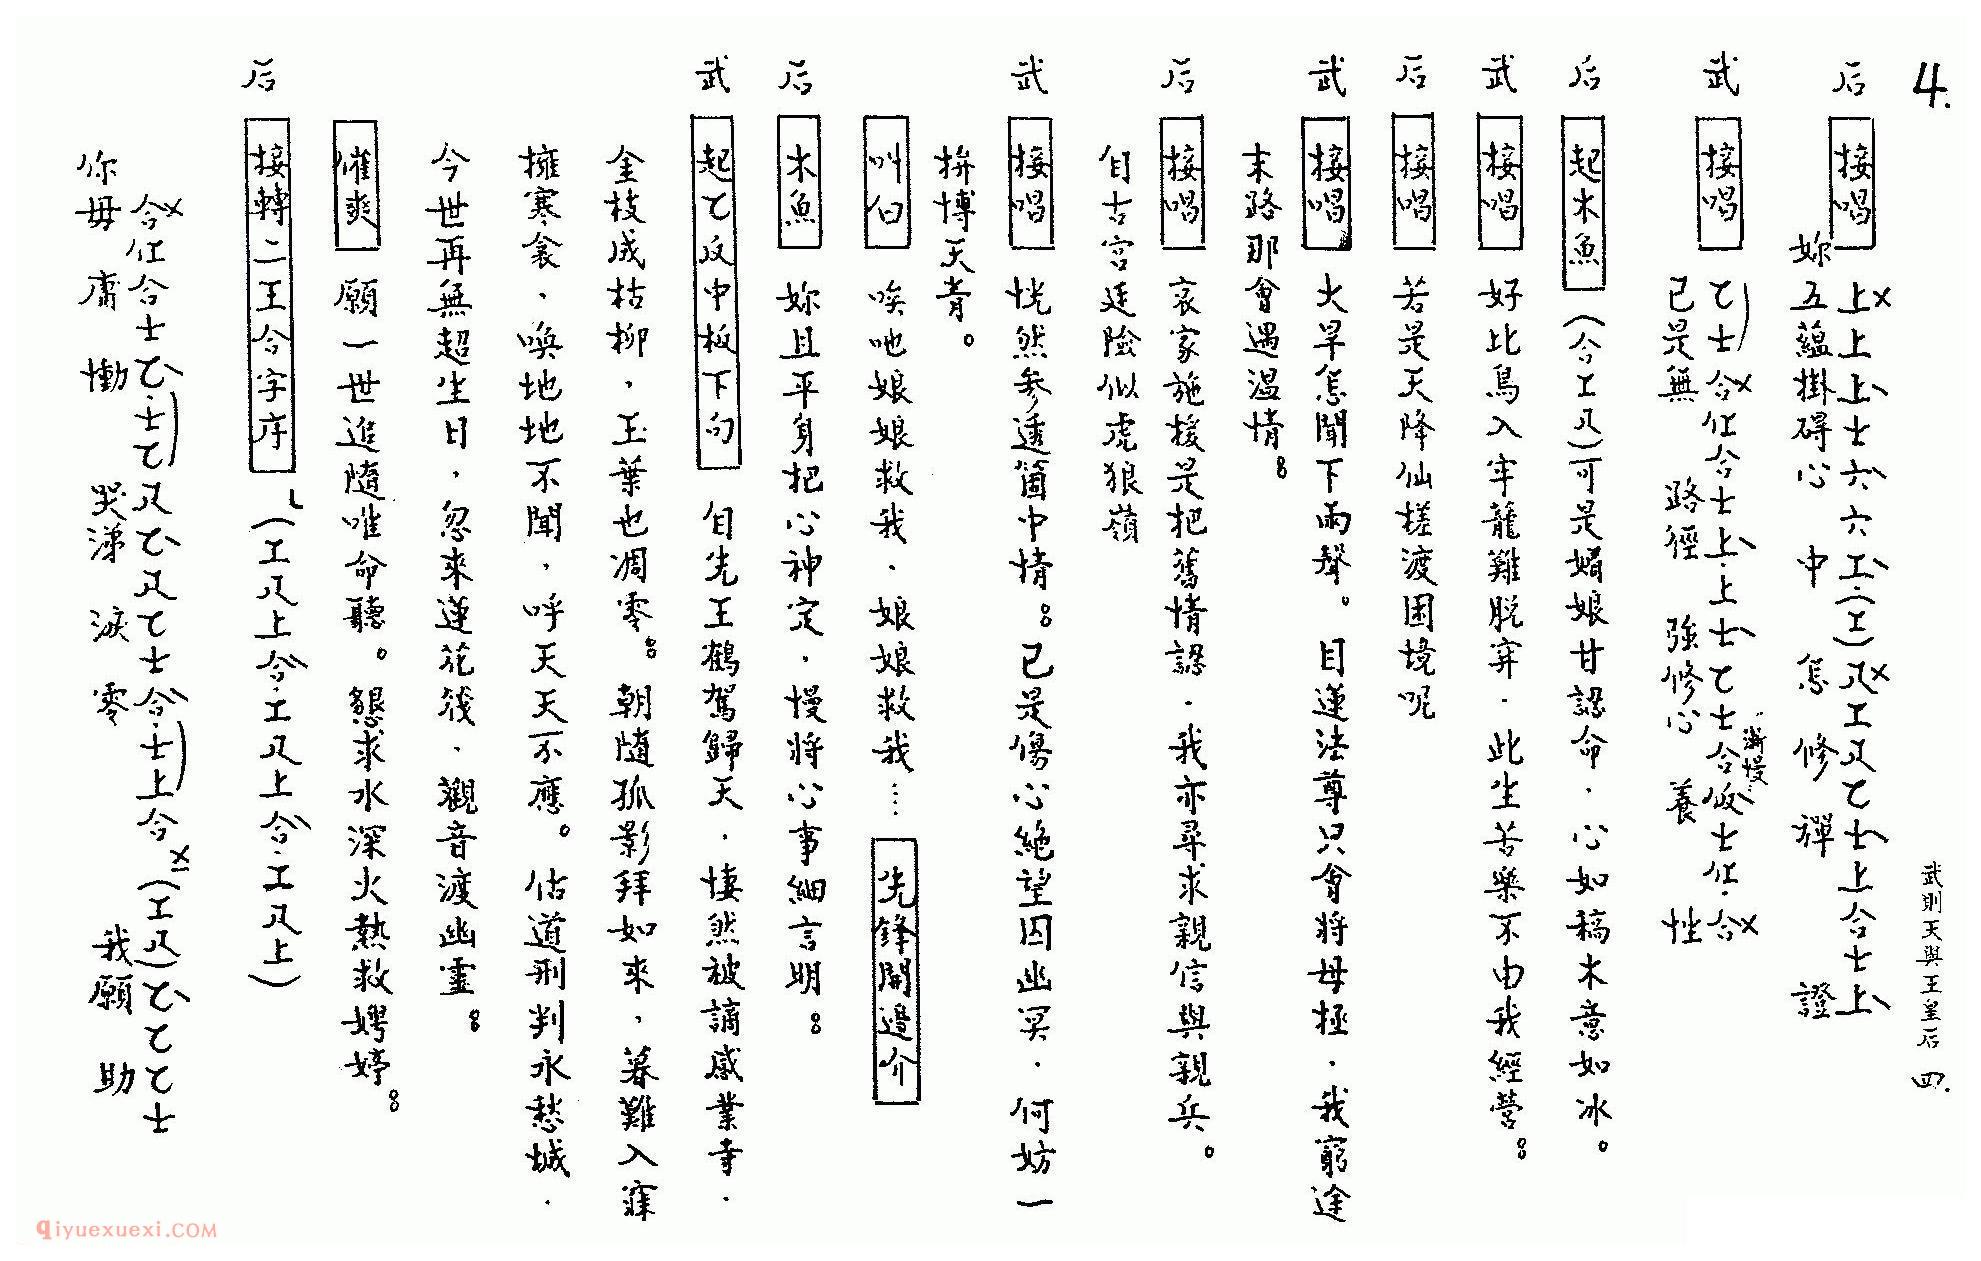 4.
武則天與王皇后 四.
后 接唱 上上上士六六工.(工)凡工凡乙士上合士上
妳五蘊掛碍心中怎修禪證
武 接唱 乙士合仕合士上.上士乙士合仮士仕.合
漸慢
已是無路徑強修心養性
后 起木魚 (合工凡)可是媚娘甘認命.心如稿木意如冰。
武 接唱 好比鳥入牢籠難脫弃.此生苦樂不由我經營。
后 接唱 若是天降仙槎渡困境呢
武 接唱 火旱怎聞下雨聲。目蓮法尊只會將母拯.我窮途
末路那會遇温情。
后 接唱 哀家施援是把舊情認.我亦尋求親信與親兵。
自古宮廷險似虎狼嶺
武 接唱 恍然參透箇中情。已是傷心絶望囚幽冥.何妨一
拚博天青。
叫白 唉吔娘娘救我.娘娘救我…… 先鋒開邉介
后 木魚 妳且平身把心神定.慢將心事細言明。
武 起乙反中板下句 自先王鶴駕歸天.悽然被謫感業寺.
金枝成枯柳,玉葉也凋零。朝隨孤影拜如來,暮難入寐
擁寒衾.喚地地不聞.呼天天不應。估道刑判永愁城.
今世再無超生日,忽來蓮花筏.觀音渡幽靈。
催爽 願一世追隨唯命聽。懇求水深火熱救娉婷。
后 接轉二王合字序 (工凡上合.工凡上合.工凡上)
合仕合士乙.士乙凡乙凡乙士合.士上合(工凡)乙乙乙士
你毋庸慟哭涕淚零我願助
qiyuexuexi.COM